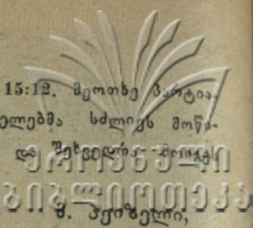 15:12. მეოთხე პარტია-
ელებმა სძლიეს მოწი-
და შეხვედრა მოიგეს
ეროვნული
ბიბლიოთეკა
მ. ჰეიზელი,